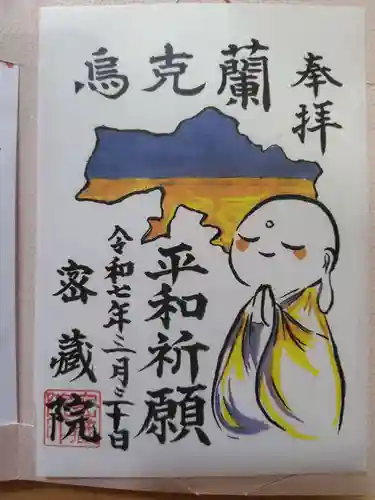 奉拝
烏克蘭
平和祈願
令和七年二月二十日
密蔵院